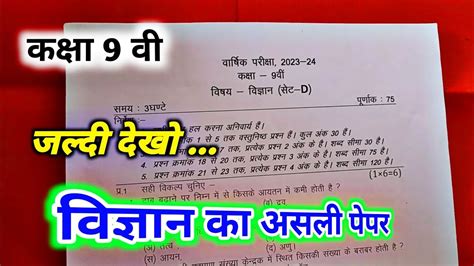 कक्षा 9 वी
वार्षिक परीक्षा, 2023-24
कक्षा - 9वीं
विषय - विज्ञान (सेट-D)
समय : 3घण्टे
पूर्णांक : 75
निर्देश
हल करना अनिवार्य हैं।
1 से 5 तक वस्तुनिष्ठ प्रश्न हैं। कुल अंक 30 हैं।
तक, प्रत्येक प्रश्न 2 अंक के है। शब्द सीमा 30 है।
जल्दी देखो ...
4. प्रश्न क्रमांक 18 से 20 तक, प्रत्येक प्रश्न 3 अंक के है। शब्द सीमा 75 है।
5. प्रश्न क्रमांक 21 से 23 तक, प्रत्येक प्रश्न 4 अंक के है। शब्द सीमा 120 है।
प्र.1 सही विकल्प चुनिए -
(1×6=6)
दाब बढ़ाने पर निम्न में से किसके आयतन में कमी होती है ?
विज्ञान का असली पेपर
(अ) तत्व,
(द) अणु।
(स) आयन,
संख्या केन्द्रक में स्थित किसकी संख्या के बराबर होती है